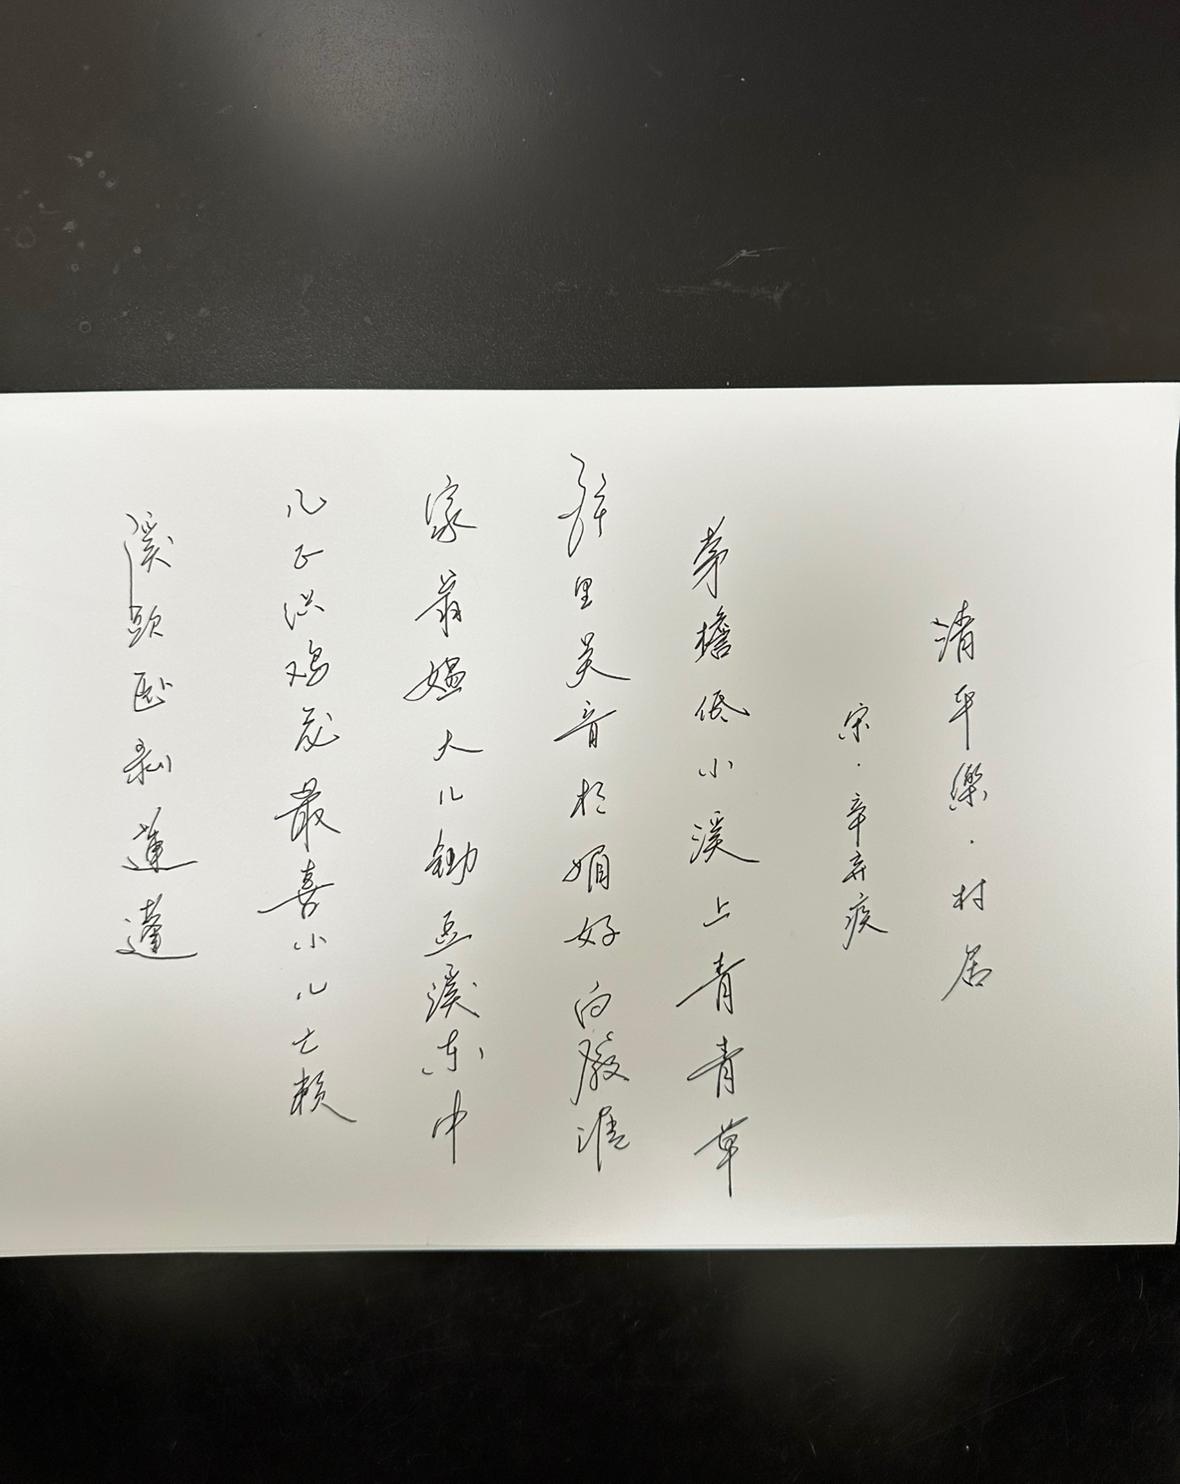 清平樂·村居
宋·辛弃疾
茅檐低小溪上青青草
醉里吴音相媚好白發谁
家翁媪大儿锄豆溪东中
儿正织鸡笼最喜小儿亡赖
溪頭卧剥蓮蓬